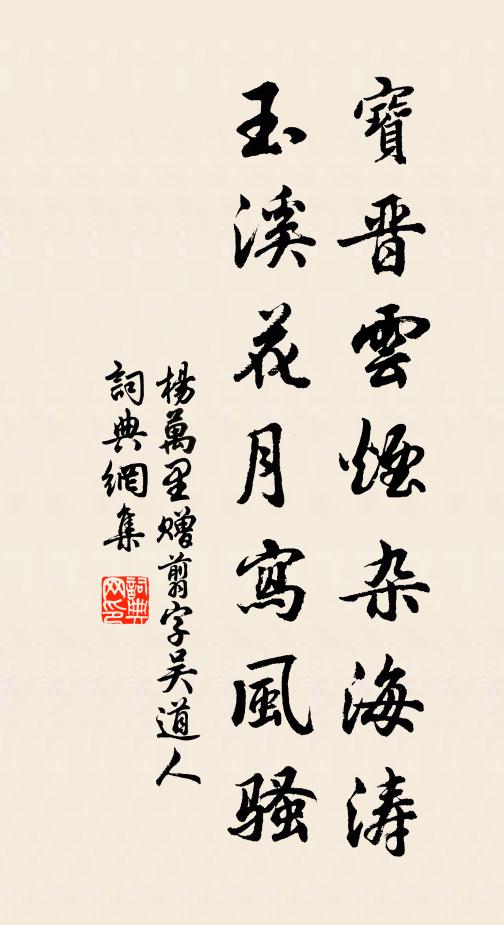 寶晋雲煙杂海涛
玉溪花月寫風騷
楊萬里赠剪字吴道人
詞典網集
詞典網印